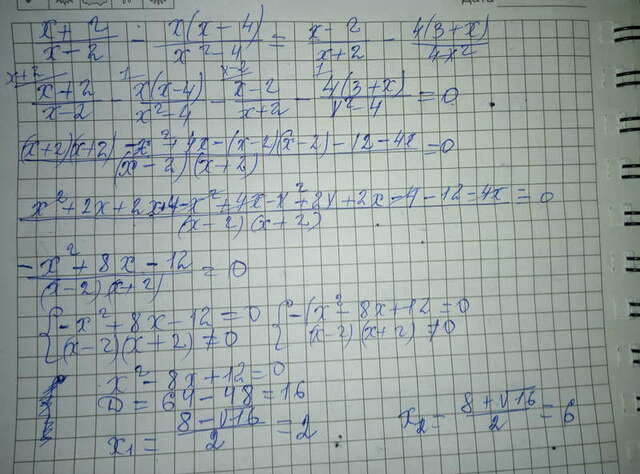 (x+2)/(x-2) - x(x-4)/(x²-4) = (x-2)/(x+2) - 4(3+x)/(4-x²)
(x+2)/(x-2) - x(x-4)/(x²-4) - (x-2)/(x+2) - 4(3+x)/(x²-4) = 0
((x+2)(x+2) - x²+4x - (x-2)(x-2) - 12 - 4x)/((x-2)(x+2)) = 0
(x²+2x+2x+4-x²+4x-x²+2x+2x-4-12-4x)/((x-2)(x+2)) = 0
(-x²+8x-12)/((x-2)(x+2)) = 0
{-x²+8x-12=0 {-(x²-8x+12=0
(x-2)(x+2)≠0 (x-2)(x+2)≠0
x²-8x+12=0
D=64-48=16
x₁=(8-√16)/2=2 x₂=(8+√16)/2=6